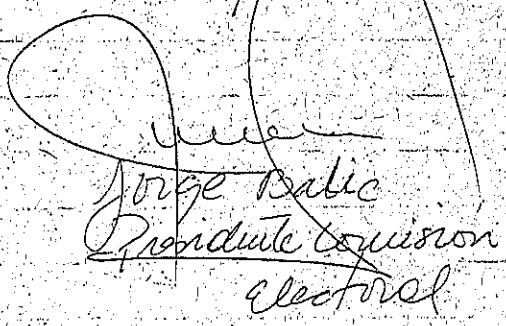 Jorge Balic
Presidente Comisión
Electoral